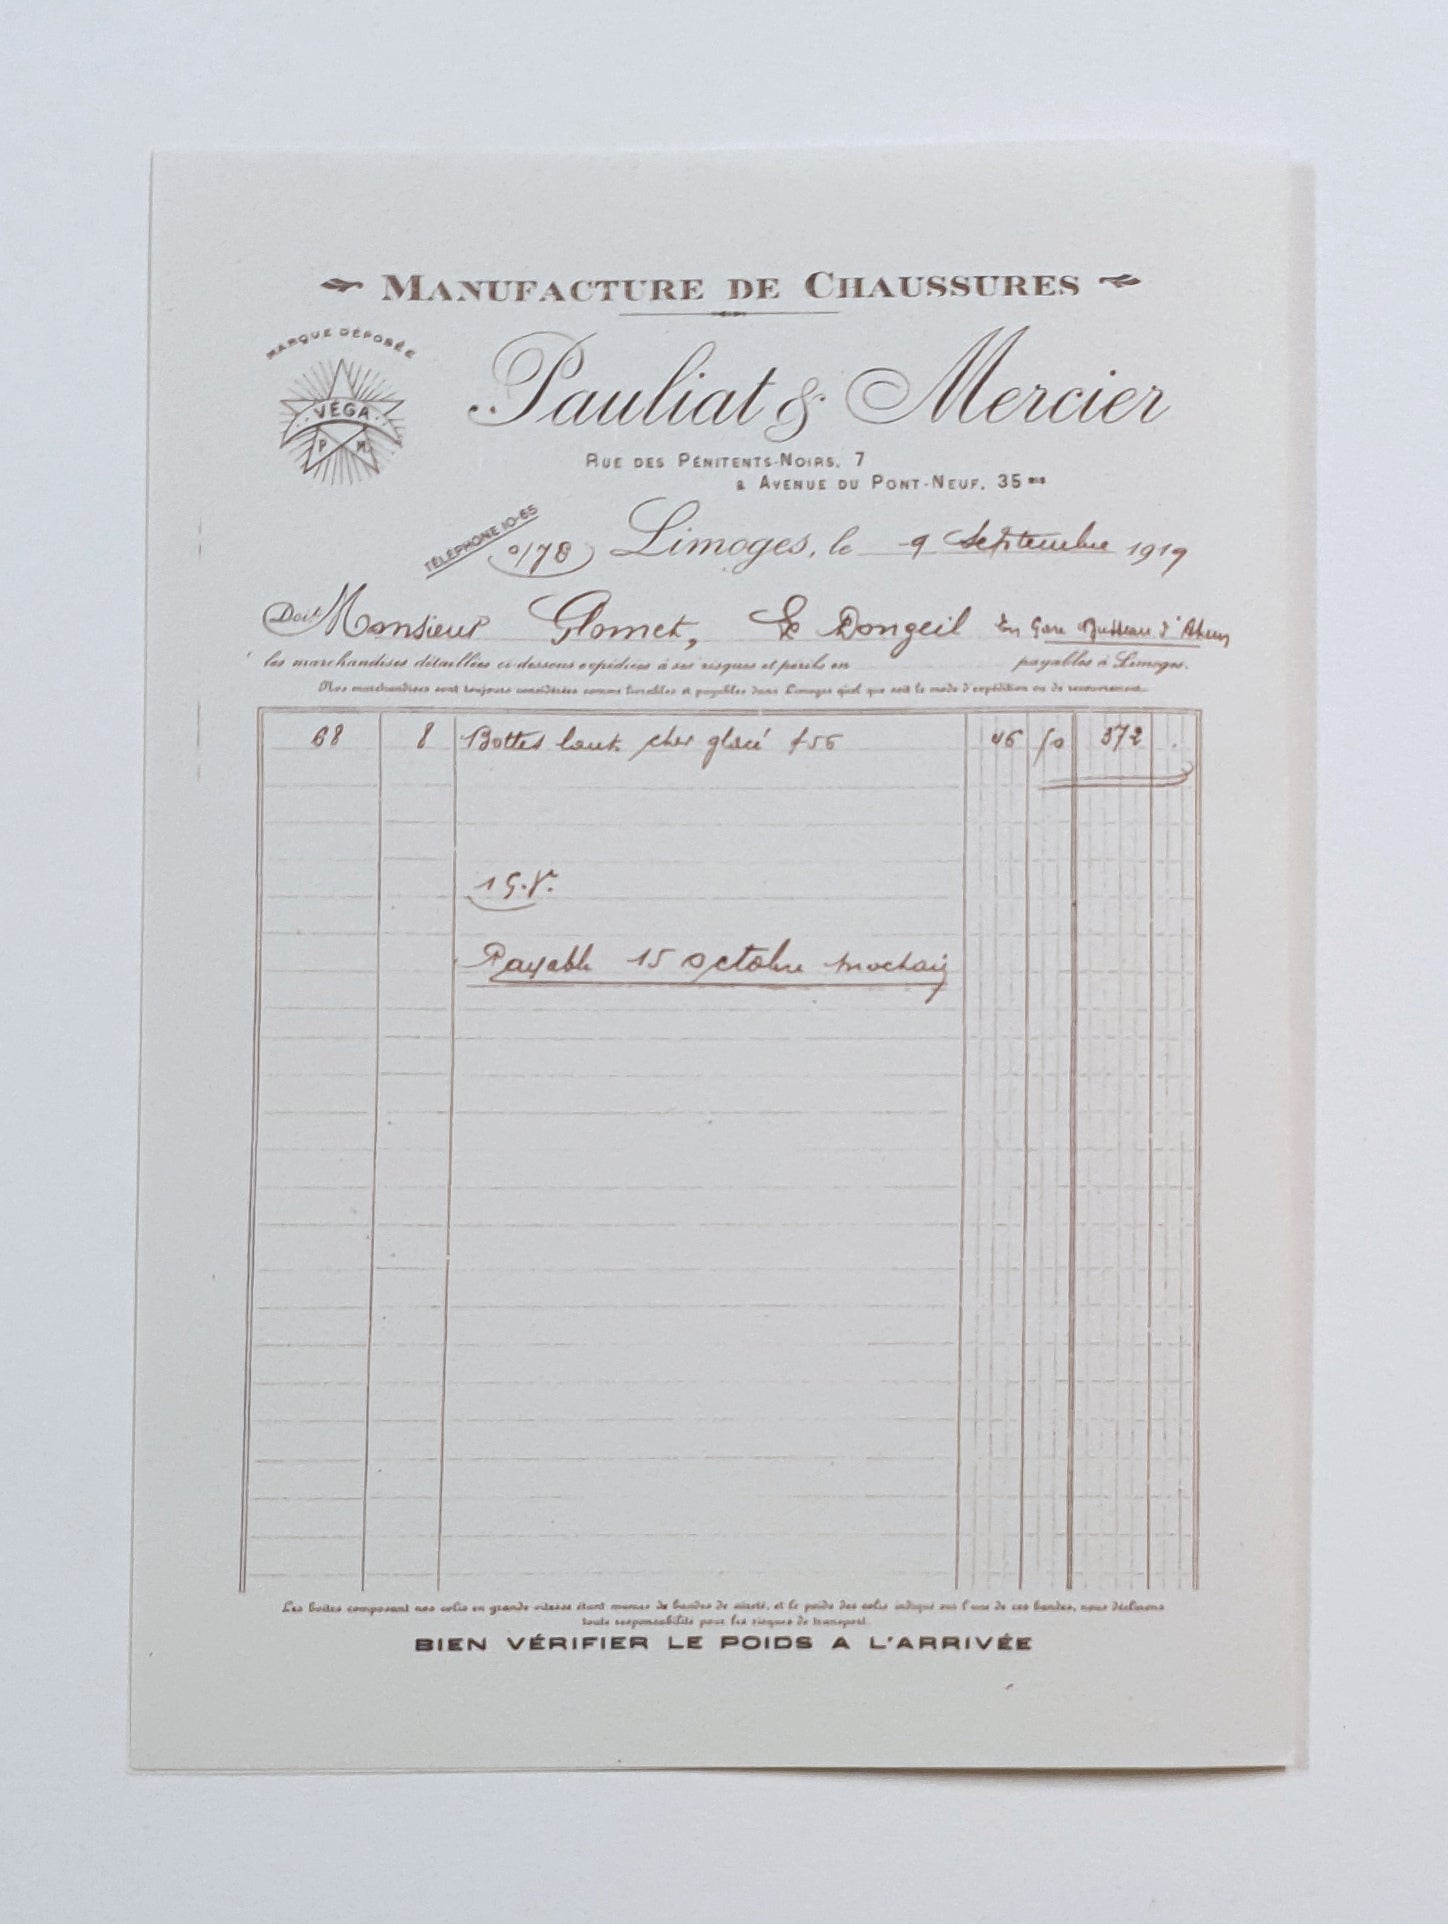 MANUFACTURE DE CHAUSSURES
MARQUE DÉPOSÉE
VÉGA
P M
Pauliat & Mercier
RUE DES PÉNITENTS-NOIRS, 7
& AVENUE DU PONT-NEUF, 35 BIS
TÉLÉPHONE 10-65
Limoges, le 9 Septembre 1919
Doit Monsieur Glomet, Dongeil En Gare d'Ahun
les marchandises détaillées ci-dessous expédiées à ses risques et périls en payables à Limoges.
Nos marchandises sont toujours considérées comme livrables et payables dans Limoges quel que soit le mode d'expédition ou de recouvrement.
68 8 Bottes chev glacé 46 50 372
Payable 15 octobre prochain
Les boîtes composant nos colis en grande vitesse étant munies de bandes de sûreté, et le poids des colis indiqué sur l'une de ces bandes, nous déclinons
toute responsabilité pour les risques de transport.
BIEN VÉRIFIER LE POIDS A L'ARRIVÉE